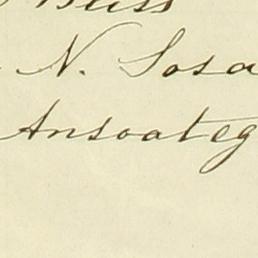 Bliss
N. Sosa
Ansoateg